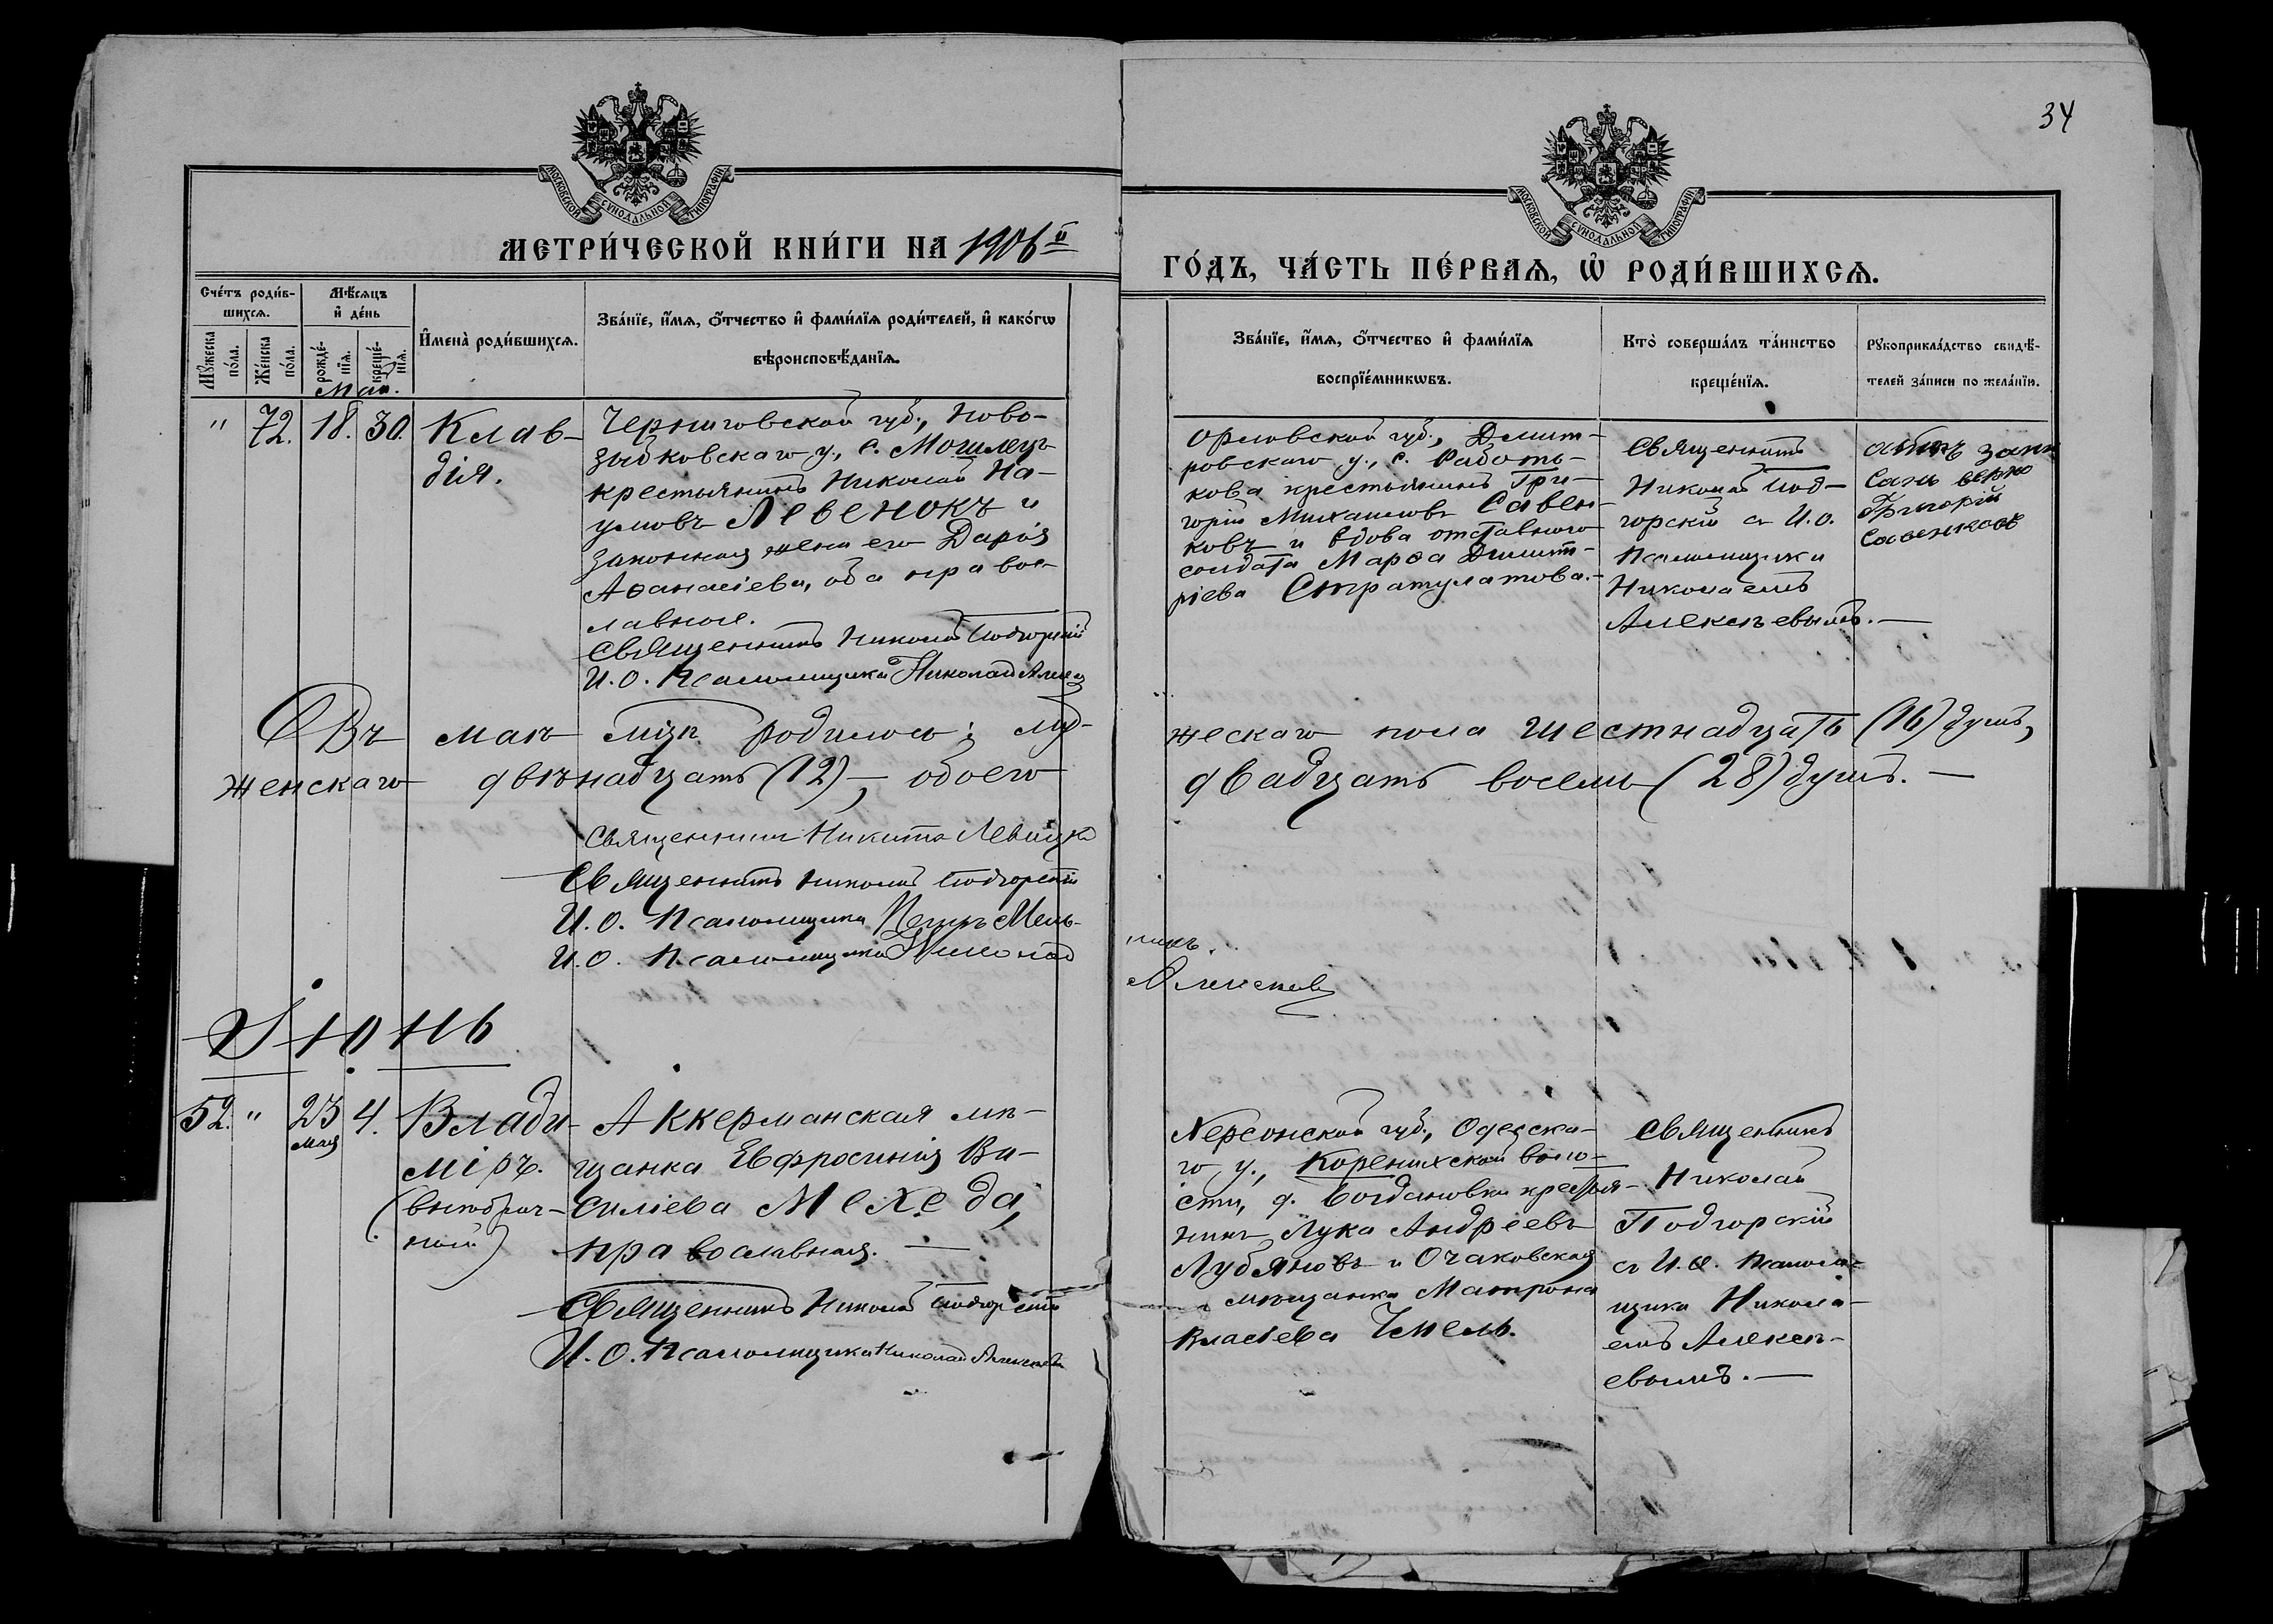 34
МОСКОВСКОЙ СѴНОДАЛЬНОЙ ТИПОГРАФІИ
МОСКОВСКОЙ СѴНОДАЛЬНОЙ ТИПОГРАФІИ
МЕТРИ́ЧЕСКОЙ КНИ́ГИ НА 1906й
ГО́ДЪ, ЧА́СТЬ ПЕ́РВАѦ, Ѡ҆ РОДИ́ВШИХСѦ.
Сче́тъ роди́в-
шихсѧ.
Мꙋ́жеска по́ла.
Же́нска по́ла.
Мѣ́сѧцъ
и҆ де́нь
рожде́-
нїѧ.
креще́-
нїѧ.
И҆мена̀ роди́вшихсѧ.
Зва́нїе, и҆́мѧ, ѻ҆́тчество и҆ фами́лїѧ роди́телей, и҆ како́гѡ
вѣроисповѣ́данїѧ.
Зва́нїе, и҆́мѧ, ѻ҆́тчество и҆ фами́лїѧ
воспрїе́мникѡвъ.
Кто̀ соверша́лъ та́инство
креще́нїѧ.
Рꙋкоприкла́дство свидѣ́-
телей за́писи по жела́нїю.
Мая.
" 72. 18. 30.
Клав-
дія.
Черниговской губ., Ново-
зыбковскаго у., с.
крестьянинъ Николай На-
умовъ Левенокъ и
законная жена его Дарія
Аѳанасіева, оба право-
лавные.
Священникъ Николай Подгорскій
И. О. Псаломщика Николай
Орловской губ., Дмит-
ровскаго у., с. Работь-
кова крестьянинъ Гри-
горій Михаиловъ Савен-
ковъ и вдова отставного
солдата Марѳа Димит-
ріева Стратулатова.
Священникъ
Николай Под-
горскій съ И. О.
Псаломщика
Николаемъ
Алексѣевымъ.—
Григорій
Савенковъ
Въ маѣ мцѣ родилось: му-
жескаго пола шестнадцать (16) душъ,
женскаго двѣнадцать (12)—, обоего
двадцать восемь (28) душъ.—
Священникъ Никита Левицкій
Священникъ Николай Подгорскій
И. О. Псаломщика Петръ Мель-
никъ.
И. О. Псаломщика Николай
Алексѣевъ
Іюнь
52. " 23 4.
мая
Влади-
міръ.
(внѣбрач-
ный)
Аккерманская мѣ-
щанка Евфросинія Ва-
силіева Мехеда,
православная.—
Священникъ Николай Подгорскій
И. О. Псаломщика Николай Алексѣевъ
Херсонской губ., Одесска-
го у., Коренихской воло-
сти, д. Богдановки крестья-
нинъ Лука Андреевъ
Лубяновъ и Очаковская
мѣщанка Матрона
Власіева Чмель.
Священникъ
Николай
Подгорскій
съ И. О. Псалом-
щика Никола-
емъ Алексѣ-
евымъ.—